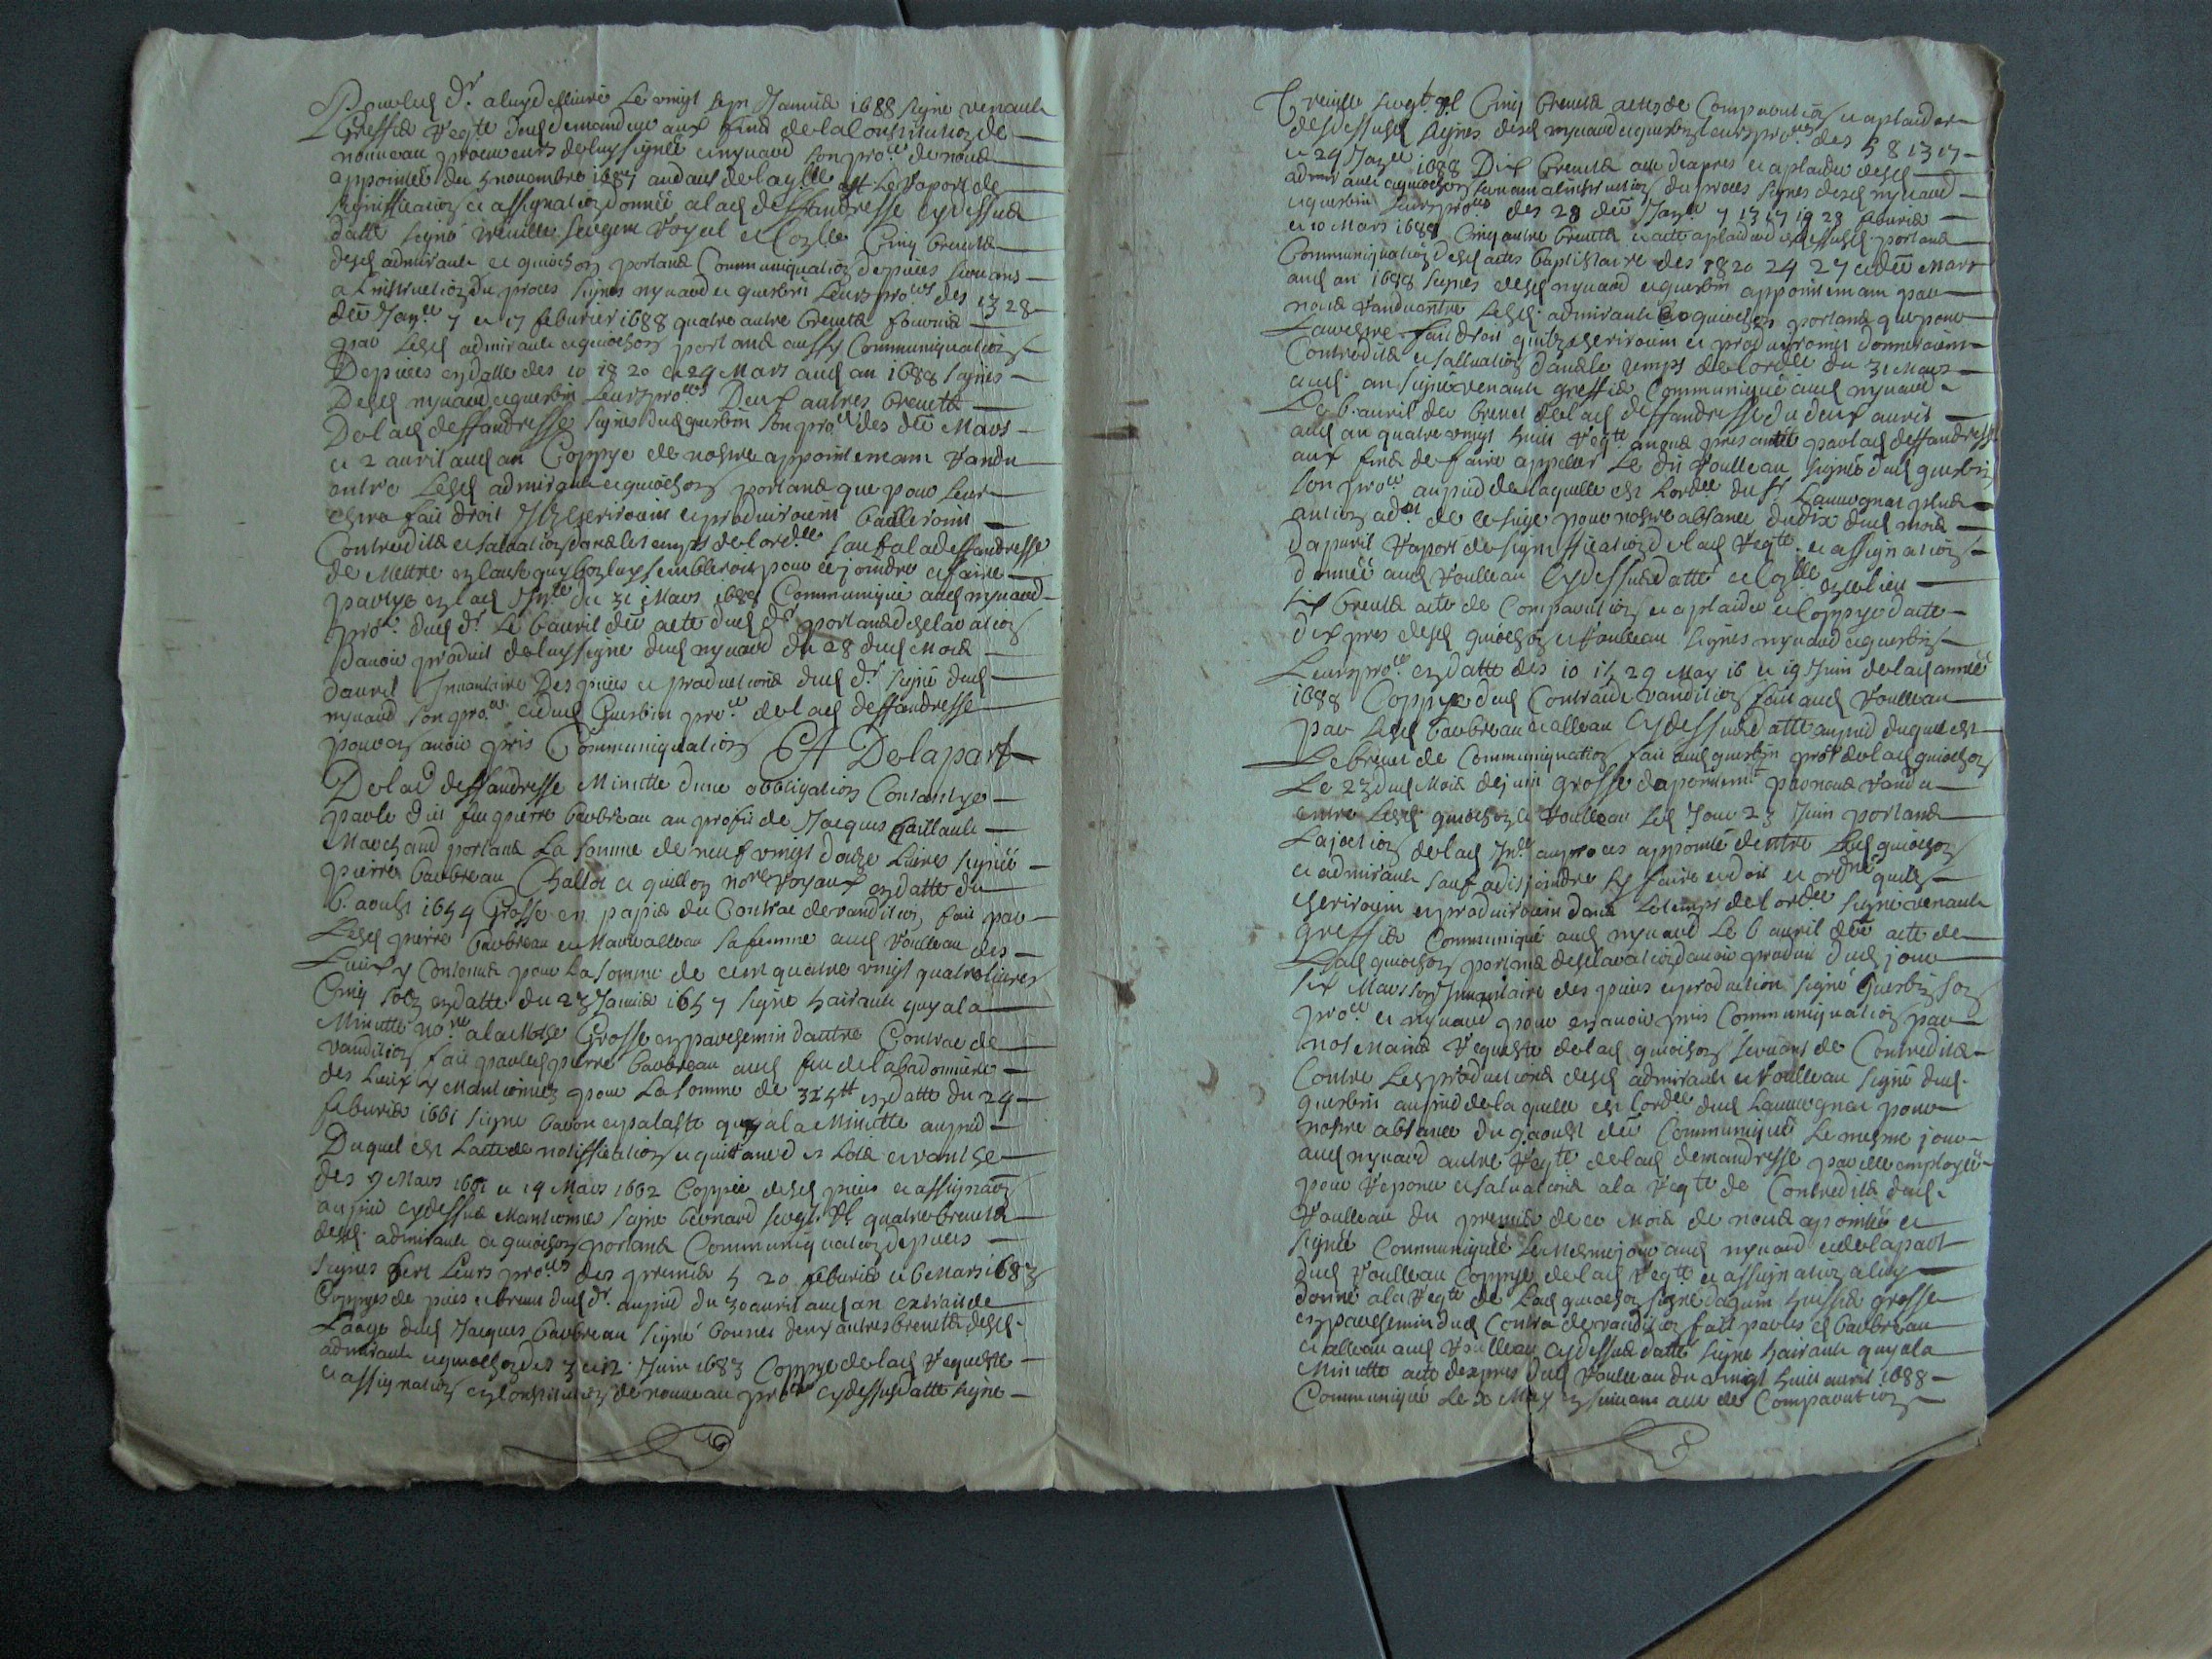 Pour led dr. a luy deslivré le vingt sept Janvie 1688 signe renault
Greffie Reqte dud demandeur aux fins de la Constitution de
nouveau procureurs de luy signée et nyvard son pror de nous
appointée du 5 novembre 1687 audaut de laqlle est le raport de
signiffication et assignation donnée a lad deffandresse cydessus
datté signé sergent royal et Cinq brevets
desd admirault et quiochon portans Communiquation de pieces servans
a linstruction du proces signes nyvard et guerbin leurs prors des 13 28
dud Janer 7 et 17 feburier 1688 quatre autre brevets fournis
par lesd admirault et quiochon portans aussy Communiquation
De pieces en datte des 10 18 20 et 29 Mars aud an 1688 signés
Desd nyvard et guerbin leurs prors Deux autres brevets
De lad deffandresse signés dud guerbin son pror des dud Mars
et 2 avril aud an Coppye de nostre appointemant randu
entre lesd admirault et quiochon portans que pour leur
estre fait droit Ilz escriroient et produiroient bailleroint
Contredits et salvation dans les temps de lordce sauf a la deffandresse
de Mettre en cause quy bon luy sembleroit pour se joindre et faire
partye en lad Insce du 31 Mars 1688 Communiqué aud nyvard
pror dud dr le 6 avril dud acte dud dr portans desclaration
davoir produit de luy signe dud nyvard du 28 dud Mois
davril Invantaire Des pieces et productions dud dr signé dud
nyvard son pror et dud Guerbin pror de lad deffandresse
pour en avoir pris Communiquation Et De la part
De lad deffandresse Minutte dune obbligation Consantye
par le dit feu pierre barbreau au profit de Jacques gaillault
Marchand portans la somme de neuf vingt douze livres signée
pierre barbreau Challot et quillon nores royaux en datte du
6 aoust 1654 Grosse en papie du Contrac de vandition fait par
lesd pierre barbreau et Marie alleau sa femme aud Voulleau des
lieux y Contenus pour la somme de cent quatre vingt quatre livres
Cinq solz en datte du 23 Janvie 1657 signe hairault quy a la
Minutte nore a la Grosse en parchemin dautre Contrac de
vandition fait par led pierre barbreau aud feu de labadonniere
des lieux y Mantionnez pour la somme de 325tt en datte du 24
feburie 1661 signe baron et palaste quy a la Minutte au pied
Duquel est lacte de notiffication et quittance des lots et vantes
des 9 Mars 1661 et 19 Mars 1662 Coppie desd pieces et assignaon
au pied cydessus Mantionnés signe bernard sergt rl quatre brevets
desd admirault et quiochon portans Communiquation de pieces
signes leurs prors des premie 5 20 feburie et 6 Mars 1683
Coppyes de pieces et brevet dud dr au pied du 30 avril aud an extrait de
Laage dud Jacques barbreau signé bonnet deux autres brevets desd
admirault et quiochon des 3 et 12 Juin 1683 Coppye de lad requeste
et assignation et Constitution de nouveau pror cydessus datté signe
sergt rl Cinq brevets actes de Comparution et a plaider
desdessusd signes desd nyvard et guerbin leurs prors des 5 8 13 17
et 29 Janer 1688 Dix brevets acte dapres et a plaider desd
admirault et quiochon servant a linstruction du proces signes desd nyvard
et guerbin leurs prors des 28 dud Janer 7 13 17 19 28 feburie
et 10 Mars 1688 Cinq autre brevets et acte a plaider desdessusd portans
Communiquation desd actes baptistaire des 18 20 24 27 et dud Mars
aud an 1688 signes desd nyvard et guerbin appointemant par
nous randu entre lesd admirault et quiochon portans que pour
leur estre fait droit quilz escriroient et produyroint donneroient
Contredits et salvation dans le temps de lordce du 31 Mars
aud an signé renault greffie Communiqué aud nyvard
Le 6 avril dud brevet de lad deffandresse du deux avril
aud an quatre vingt huit Reqte a nous presantée par lad deffandresse
aux fins de faire appeller le dit Voulleau signée dud guerbin
son pror au pied de laquelle est lordce du sr Lauvergnat plus
antien adat de ce siege pour nostre absance du dix dud mois
dapvril raport de signiffication de lad reqte et assignation
donnée aud Voulleau cydessus datté et en lieu
six brevets acte de Comparution et a plaider et Coppye dacte
dexpres desd quiochon et Voulleau signes nyvard et guerbin
Leurs pror en datte des 10 15 29 May 16 et 19 Juin de lad année
1688 Coppye dud Contract de vandition fait aud Voulleau
par lesd barbreau et alleau cydessus datté au pied duquel est
Le brevet de Communiquation fait aud guerbin pror de lad quiochon
Le 23 dud Mois de juin grosse dapointemt par nous randu
entre lesd quiochon et Voulleau led Jour 23 Juin portans
La jonction de lad Insce au proces appointé dentre lesd quiochon
et admirault sauf a disjoindre sy faire ce doit et ordonné quilz
escriroient et produiroient dans le temps de lordce signé renault
greffie Communiqué aud nyvard Le 6 avril dud acte de
Lad quiochon portans desclaration davoir produit dud jour
six Mars son Invantaire des pieces et production signé Guerbin son
pror et nyvard pour en avoir pris Communiquation par
nos Mains Requeste de lad quiochon servant de Contredits
Contre les productions desd admirault et Voulleau signé dud
guerbin au pied de laquelle est lordce dud Lauvergnat pour
nostre absance du 9 aoust dud Communiqué le mesme jour
aud nyvard autre Reqte de lad demandresse par elle employée
pour reponce et salvations a la reqte de Contredits dud
Voulleau du premie de ce Mois de nous apointée et
signée Communiquée le Mesme jour aud nyvard et de la part
dud Voulleau Coppye de lad reqte et assignation a luy
donné a la reqte de Lad quiochon signé dagum huissie grosse
en parchemin dud Contra de vandition fait par les d barbreau
et alleau aud Voulleau cydessus datté signe hairault quy a la
Minutte acte dexpres dud Voulleau du vingt huit avril 1688
Communiqué Le x May ensuivant acte de Comparution